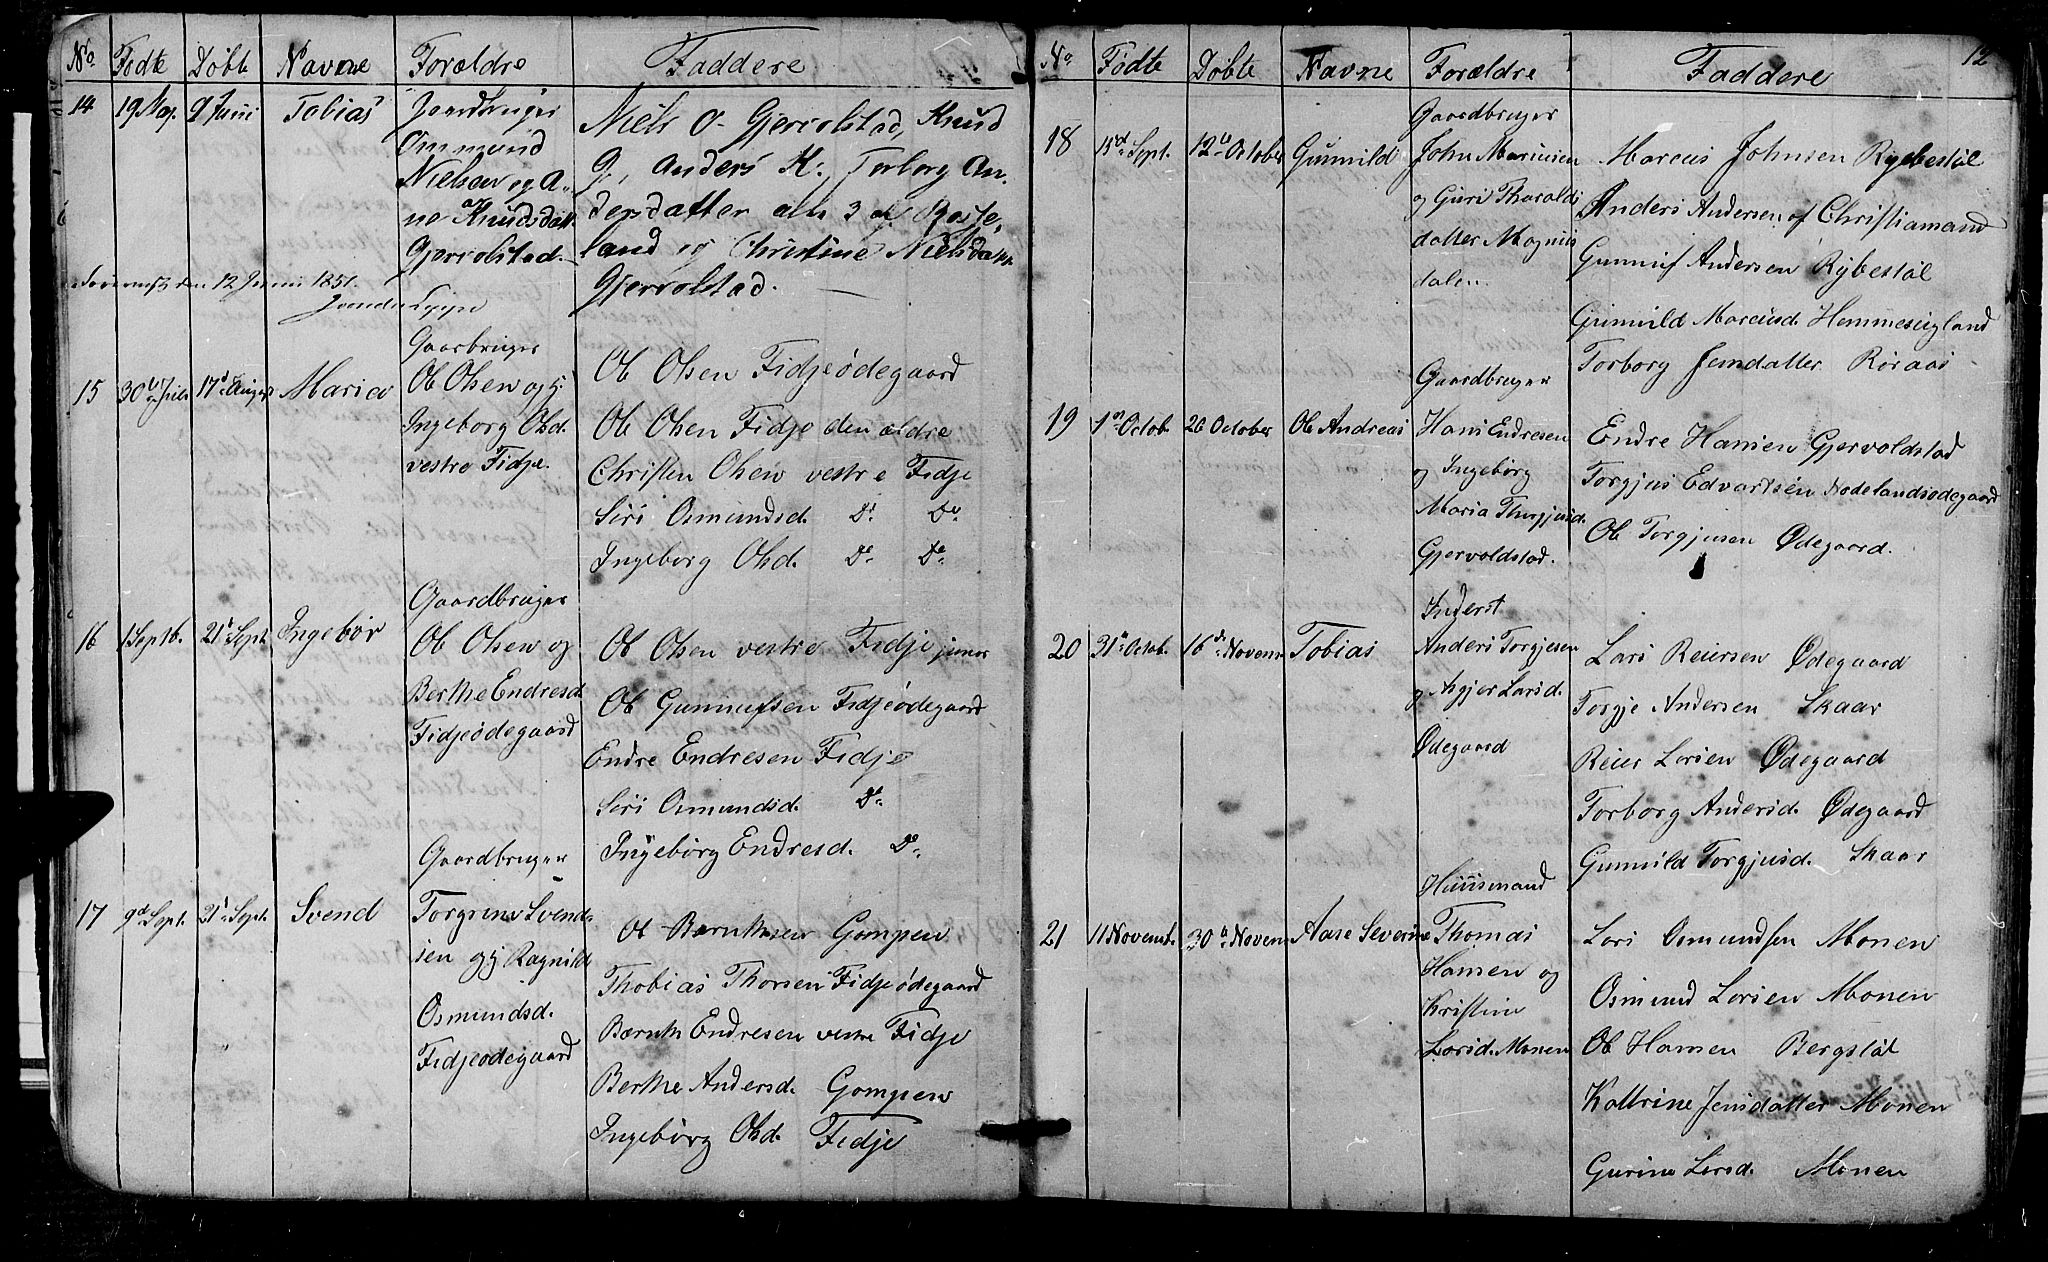 No. Fødte Døbte Navne Forældre Faddere
14 19 May. 9 Junii Tobias
Gaardbruger
Ommund
Nielsen og A-
ne Knudsdatt.
Gjervolstad.
Niels O. Gjervolstad, Knud
G., Anders K., Torborg An-
dersdatter alle 3 af Røsse-
land og Christine Nielsdattr
Gjervolstad.
den 12 Junii 1851.
15 30te Juli 17d August Maria
Gaarbruger
Ole Olsen og
Ingeborg Olsd.
vestre Fidje.
Ole Olsen Fidjeødegaard
Ole Olsen Fidje den ældre
Christen Olsen vestre Fidje
Siri Osmundsd. Do. Do.
Ingeborg Olsd. Do. Do.
16 1 Septb. 21d Sept. Ingebør
Gaardbruger
Ole Olsen og
Berthe Endresd.
Fidjeødegaard
Ole Olsen vestre Fidje junor
Ole Gunnufsen Fidjeødegaard
Endre Endresen Fidje
Siri Osmundsd. Do.
Ingebørg Endresd. Do.
17 9d Sept. 21d Sept. Svend
Gaardbruger
Torgrim Svend-
sen og Ragnild
Osmundsd.
Fidjeødegaard
Ole Bærntsen Gompen
Thobias Thorsen Fidjeødegaard
Bærnt Endresen vestre Fidje
Berthe Andersd. Gompen
Ingebørg Olsd. Fidje
12
No. Fødte Døbte Navne Forældre Faddere
18 15d Sept. 12te October Gunnild
Gaardbruger
John Marcusen
og Guri Tharalds
datter Magnus
dalen.
Marcus Johnsen Rybestøl
Anders Andersen af Christiansand
Gunnuf Andersen Rybestøl
Gunnild Marcusd. Hemmesugland
Torborg Jensdatter Røraas
19 1en Octob. 26 October Ole Andreas
Gaardbruger
Hans Endresen
og Ingebørg
Maria Thorgjusd.
Gjervoldstad.
Endre Hansen Gjervoldstad
Torgjus Edvartsen Nodelandsødegaard
Ole Torgjusen Ødegaard.
20 31te Octob. 16de Novem. Tobias
Inderst
Anders Torgjesen
og Asgjer Larsd.
Ødegaard
Lars Reiersen Ødegaard
Torgje Andersen Skaar
Reier Larsen Ødegaard
Torborg Andersd. Ødegaard
Gunnild Torgjusd. Skaar
21 11 Novemb. 30te Novem. Aase Severine
Huusmand
Thomas
Hansen og
Kristine
Larsd. Monen
Lars Osmundsen Monen
Osmund Larsen Monen
Ole Hansen Bergstøl
Kattrine Jensdatter Monen
Gurine Larsd. Monen